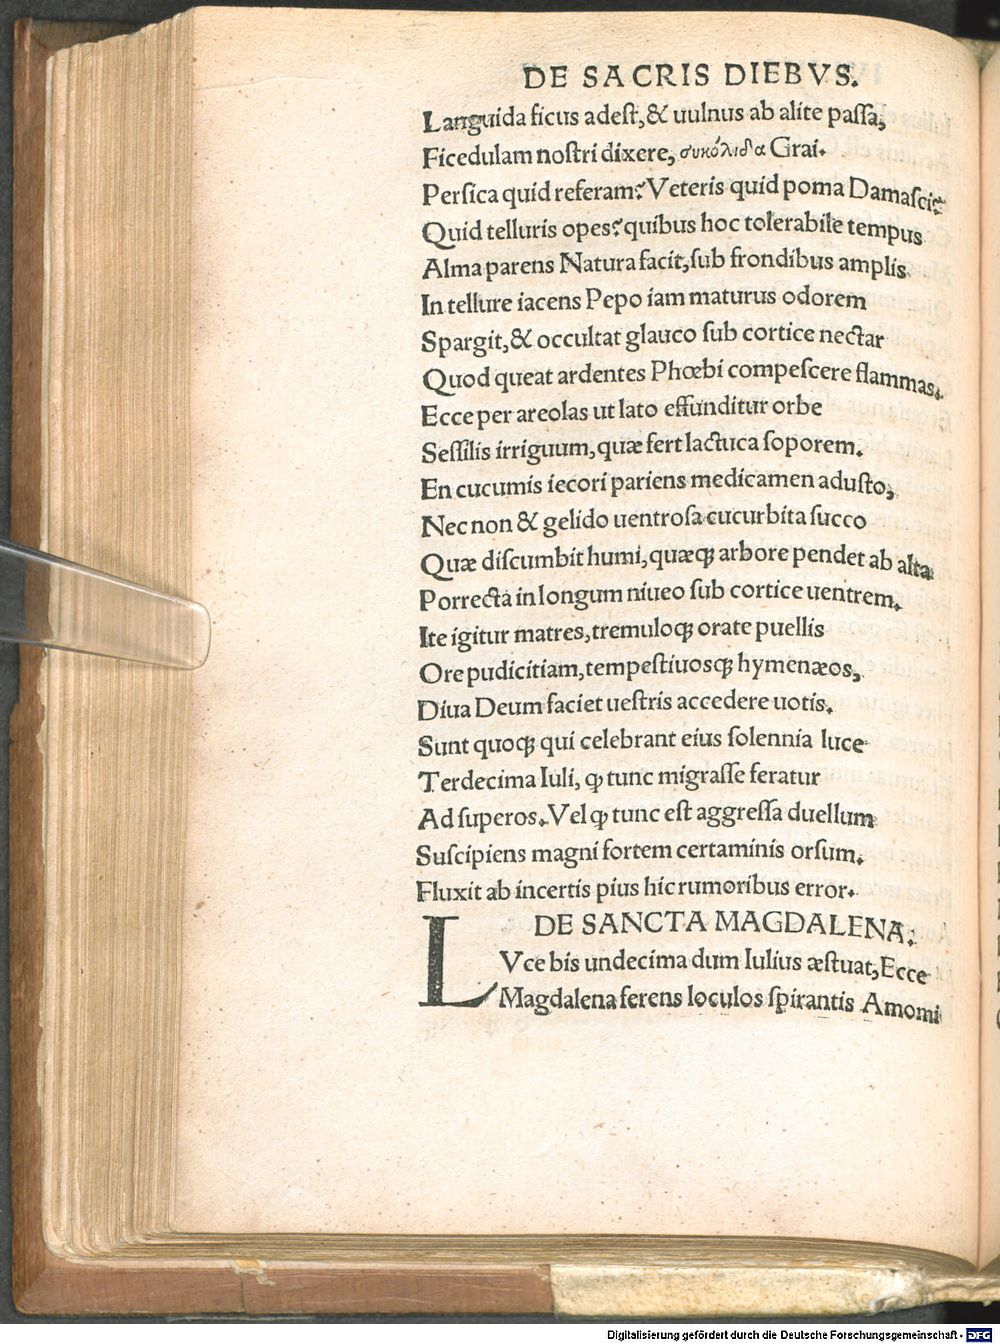 DE SACRIS DIEBVS.
Languida ficus adest, & uulnus ab alite passa,
Ficedulam nostri dixere, συκόλιδα Grai.
Persica quid referam? Veteris quid poma Damasci?
Quid telluris opes? quibus hoc tolerabile tempus
Alma parens Natura facit, sub frondibus amplis
In tellure iacens Pepo iam maturus odorem
Spargit, & occultat glauco sub cortice nectar
Quod queat ardentes Phœbi compescere flammas.
Ecce per areolas ut lato effunditur orbe
Sessilis irriguum, quæ fert lactuca soporem.
En cucumis iecori pariens medicamen adusto,
Nec non & gelido uentrosa cucurbita succo
Quæ discumbit humi, quæqꝫ arbore pendet ab alta
Porrecta in longum niueo sub cortice uentrem.
Ite igitur matres, tremuloqꝫ orate puellis
Ore pudicitiam, tempestiuosqꝫ hymenæos,
Diua Deum faciet uestris accedere uotis.
Sunt quoqꝫ qui celebrant eius solennia luce
Terdecima Iuli, ꝙ tunc migrasse feratur
Ad superos. Vel ꝙ tunc est aggressa duellum
Suscipiens magni fortem certaminis orsum.
Fluxit ab incertis pius hic rumoribus error.
DE SANCTA MAGDALENA.
LVce bis undecima dum Iulius æstuat, Ecce
Magdalena ferens loculos spirantis Amomi
Digitalisierung gefördert durch die Deutsche Forschungsgemeinschaft - DFG